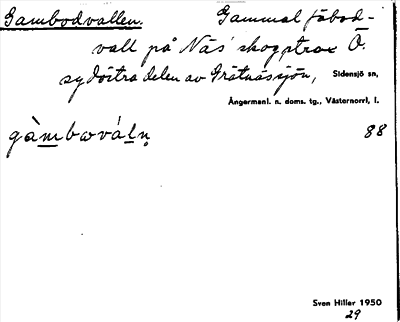 Gambodvallen. Gammal fäbod-
vall på Näs' skog strax Ö.
sydöstra delen av Grätnässjön, Sidensjö sn,
Ångermanl. n. doms. tg., Västernorrl. l.
gàmbωváln̥ 88
Sven Hiller 1950
29